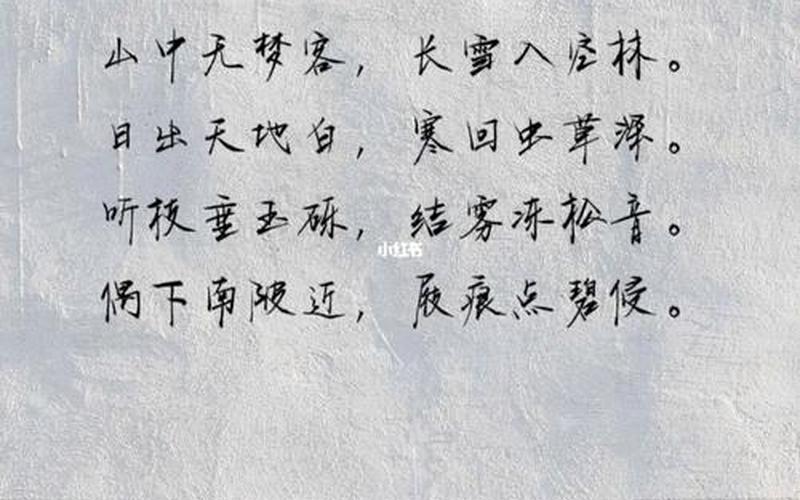 山中无梦客，长雪入空林。
日出天地白，寒回虫草深。
听枝垂玉砾，结雾冻松音。
小红书
偶下南陂近，屐痕点碧侵。